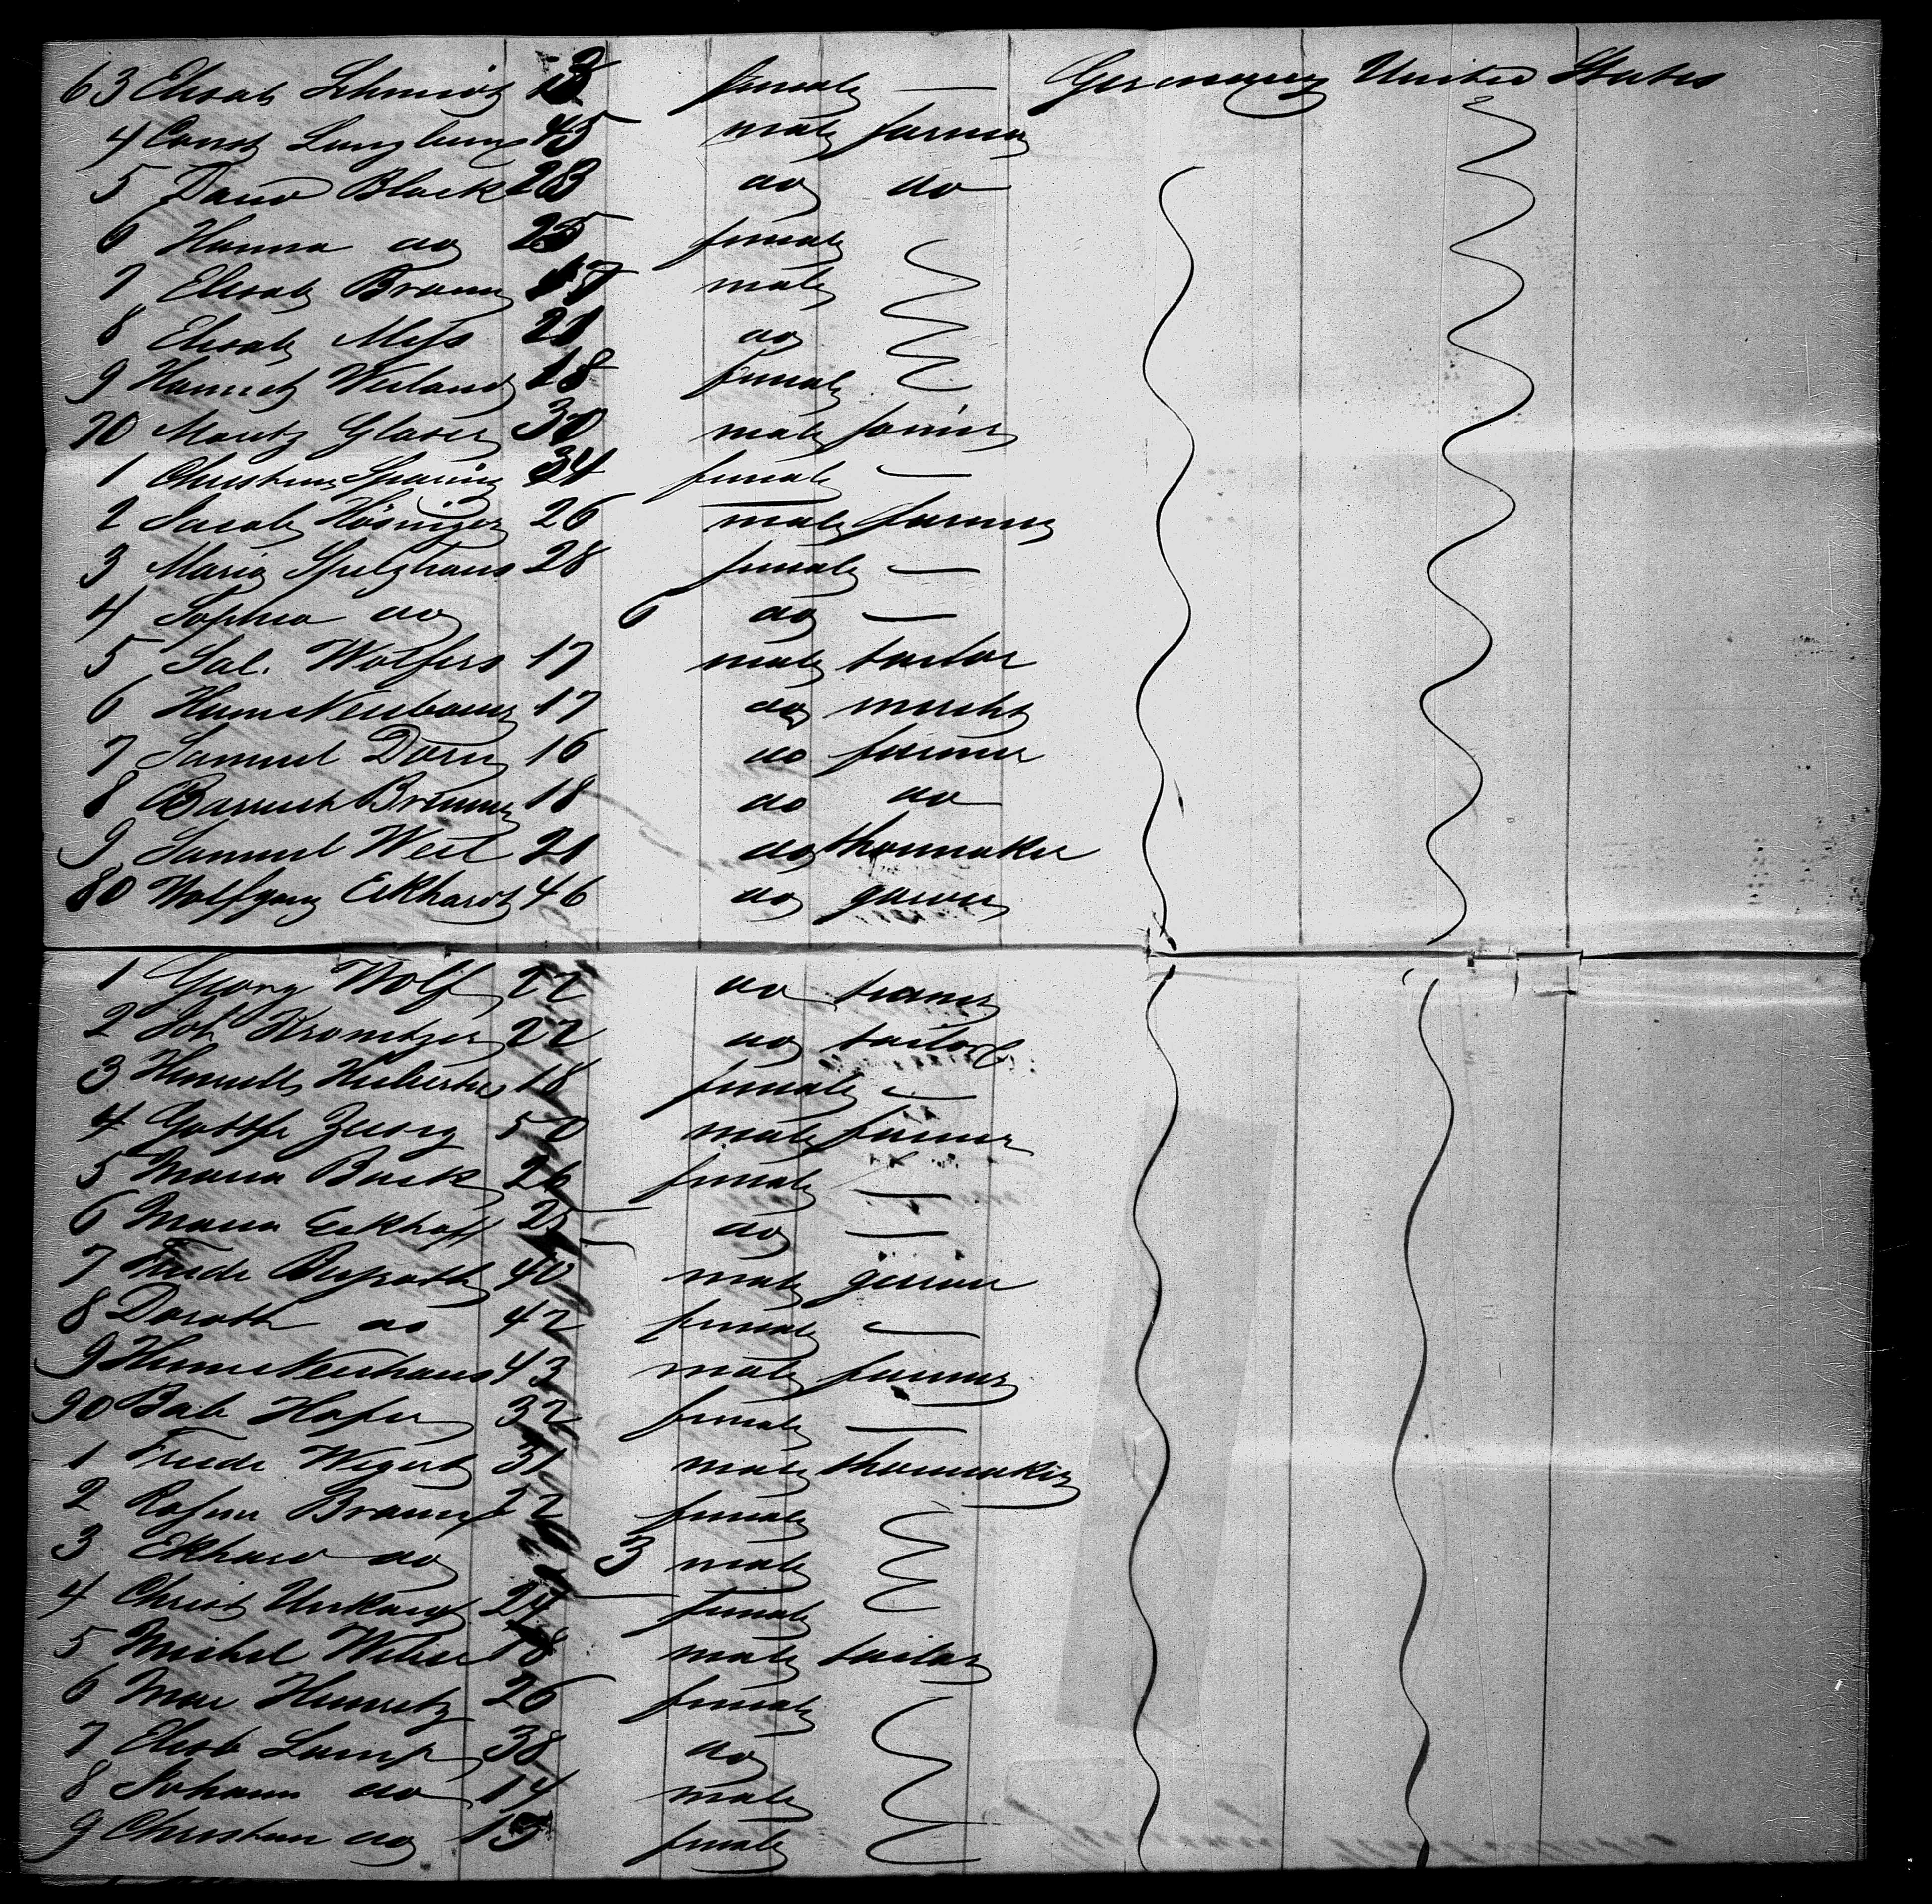 63 Elisab Schmidt female — Germany United States
4 Ernst 45 male farmer
5 David Black 23 do do
6 Hanna do 25 female
7 Elisab Braun 17 male
8 Elisab 21 do
9 Weiland 18 female
70 Moritz Glaser 30 male joiner
1 Christine 34 female —
2 Jacob 26 male farmer
3 Maria Spelzhaus 28 female —
4 Sophia do 6 do —
5 Sal. Wolfers 17 male tailor
6 Herm Neubauer 17 do mercht
7 Samuel Dorn 16 do farmer
8 Baruch Brunner 18 do do
9 Samuel Weil 21 do shoemaker
80 Wolfgang Eckhardt 46 do
1 Georg Wolf 22 do
2 Joh 22 do tailor
3 18 female —
4 50 male farmer
5 Maria Buck 26 female —
6 Maria Eckhoff 25 do —
7 Friedr 40 male
8 Doroth do 42 female —
9 Herm Neuhaus 43 male farmer
90 Bab Hofer 32 female —
1 Friedr 31 male shoemaker
2 Braun 22 female
3 Ekhard do 3 male
4 Christ 24 female
5 Michel Weber 18 male tailor
6 Mar 26 female
7 Elisab Lump 38 do
8 Johann do 14 male
9 Christian do female